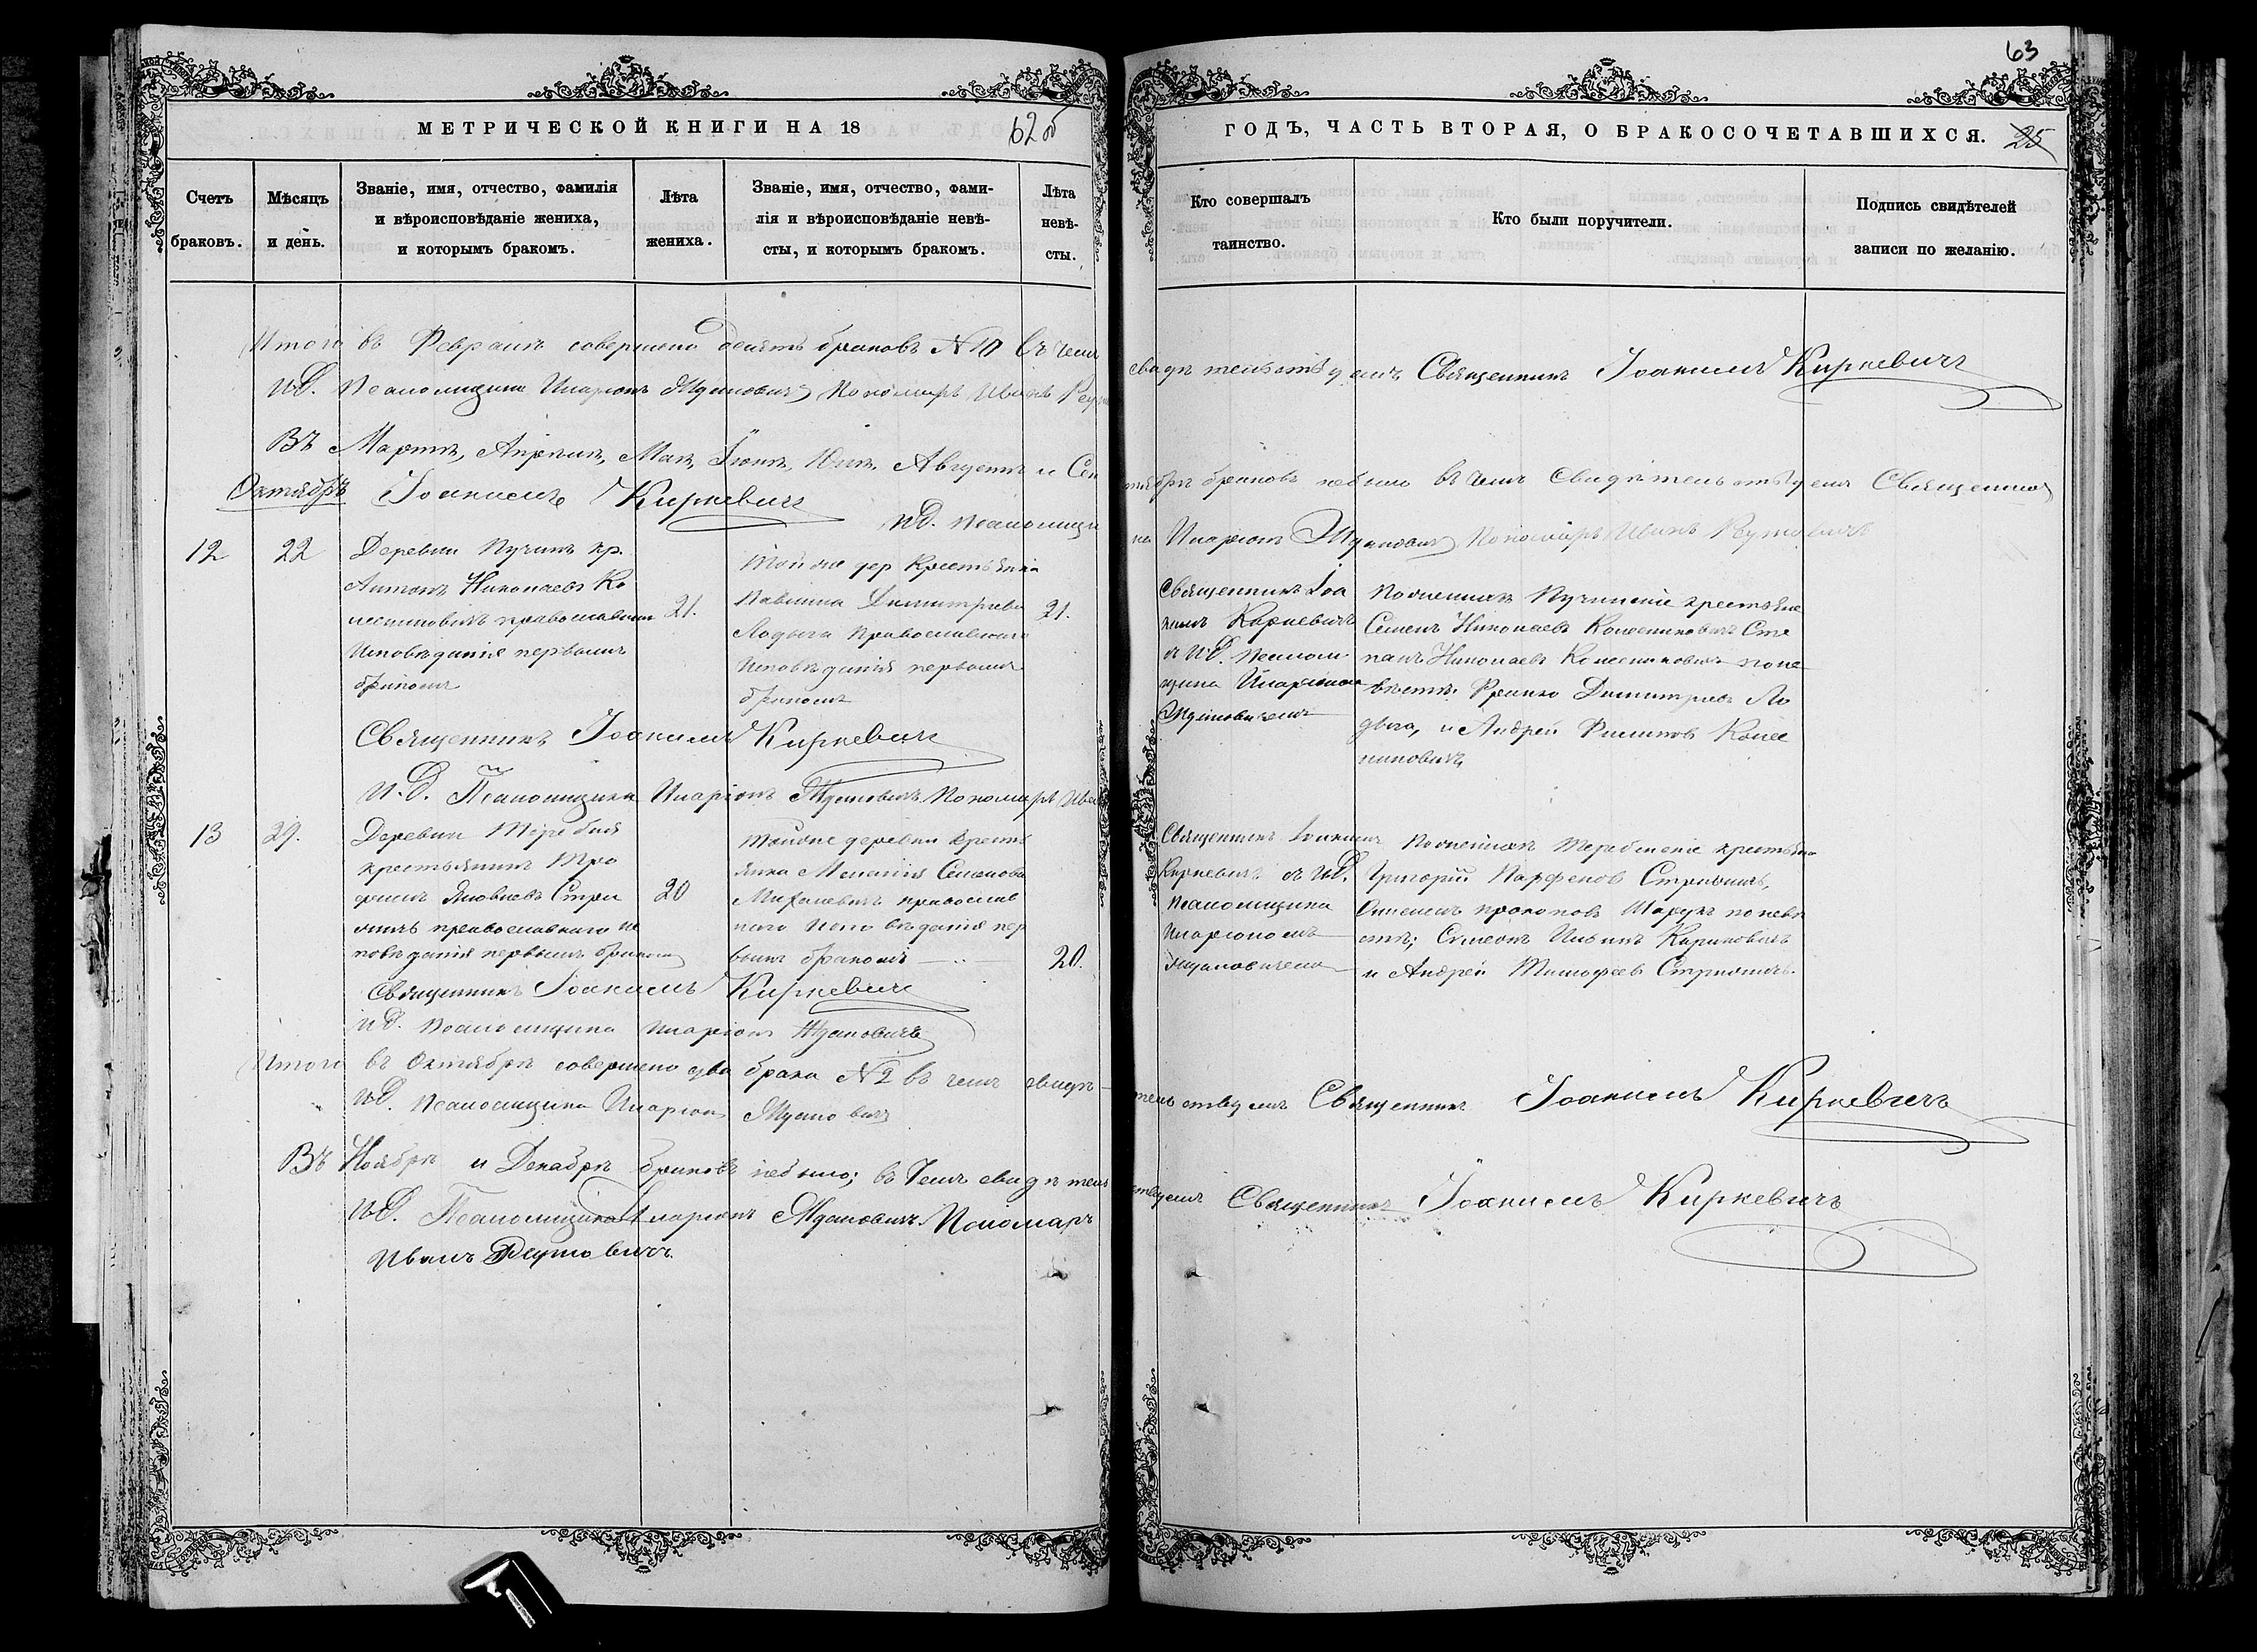 63
МЕТРИЧЕСКОЙ КНИГИ НА 18
62 об
ГОДЪ, ЧАСТЬ ВТОРАЯ, О БРАКОСОЧЕТАВШИХСЯ.
25
Счетъ браковъ.
Мѣсяцъ и день.
Званіе, имя, отчество, фамилія
и вѣроисповѣданіе жениха,
и которымъ бракомъ.
Лѣта жениха.
Званіе, имя, отчество, фами-
лія и вѣроисповѣданіе невѣ-
сты, и которымъ бракомъ.
Лѣта невѣ-сты.
Кто совершалъ таинство.
Кто были поручители.
Подпись свидѣтелей
записи по желанію.
Итого въ Февралѣ совершено десять браковъ N 10 въ чемъ
свидѣтельствуемъ Священникъ Іоакимъ Киркевичъ
И.Д. Псаломщика Иларіонъ Ждановичъ Пономарь Иванъ
Въ Мартѣ, Апрѣлѣ, Маѣ, Іюнѣ, Юлѣ, Августѣ и Сен
тябрѣ браковъ небыло въ чемъ свидѣтельствуемъ Священникъ
Октябрь
Іоакимъ Киркевичъ
И.Д. Псаломщи
ка Иларіонъ Ждановичъ Пономарь Иванъ
12
22
Деревни Пучинъ кр.
Антонъ Николаевъ Ко
лесниковичъ православнаго
Исповѣданія первымъ
бракомъ
21.
Тойже дер Крестьянка
Павлина Димитріева
Лодыга православнаго
Исповѣданія первымъ
бракомъ
21.
Священникъ Іоа
кимъ Киркевичъ
съ И.Д. Псалом
щика Иларіономъ
Ждановичемъ
По женихѣ Пучинскіе крестьяне
Семенъ Николаевъ Колесниковичъ Сте
панъ Николаевъ Колесниковичъ по не
вѣстѣ Франко Димитріевъ Ло
дыга, и Андрей Филиповъ Колес
никовичъ
Священникъ Іоакимъ Киркевичъ
И.Д. Псаломщика Иларіонъ Ждановичъ Пономарь Ива
13
29.
Деревни Теребля
крестьянинъ Тро
фимъ Яковлевъ Стри
православнаго ис
повѣданія первымъ бракомъ
20
Тойже деревни Крестъ
янка Меланія Семенова
Михалевичъ православ
наго Исповѣданія пер
вымъ бракомъ
20.
Священникъ Іоакимъ
Киркевичъ съ И.Д.
Псаломщика
Иларіономъ
Ждановичемъ
По женихѣ Теребленскіе крестьяне
Григорій Парфеновъ
прокоповъ по невѣ
стѣ; Симеонъ Ильинъ
и Андрей Тимофеевъ
Священникъ Іоакимъ Киркевичъ
И.Д. Псаломщика Иларіонъ Ждановичъ
Итого въ Октябрѣ совершено два брака N 2 въ чемъ свидѣ
тельствуемъ Священникъ Іоакимъ Киркевичъ
И.Д. Псаломщика Иларіонъ Ждановичъ
Въ Ноябрѣ и Декабрѣ браковъ небыло; въ чемъ свидѣтель
ствуемъ Священникъ Іоакимъ Киркевичъ
И.Д. Псаломщика Иларіонъ Ждановичъ. Пономарь
Иванъ